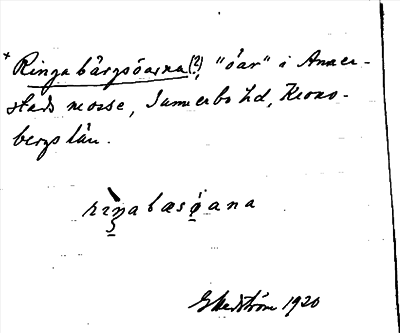 × Ringabärgsöarna (?), "öar" i Anner-
stads mosse, Sunnerbo hd, Krono-
bergs län.
riŋabæso̤ana
Ekedström 1920